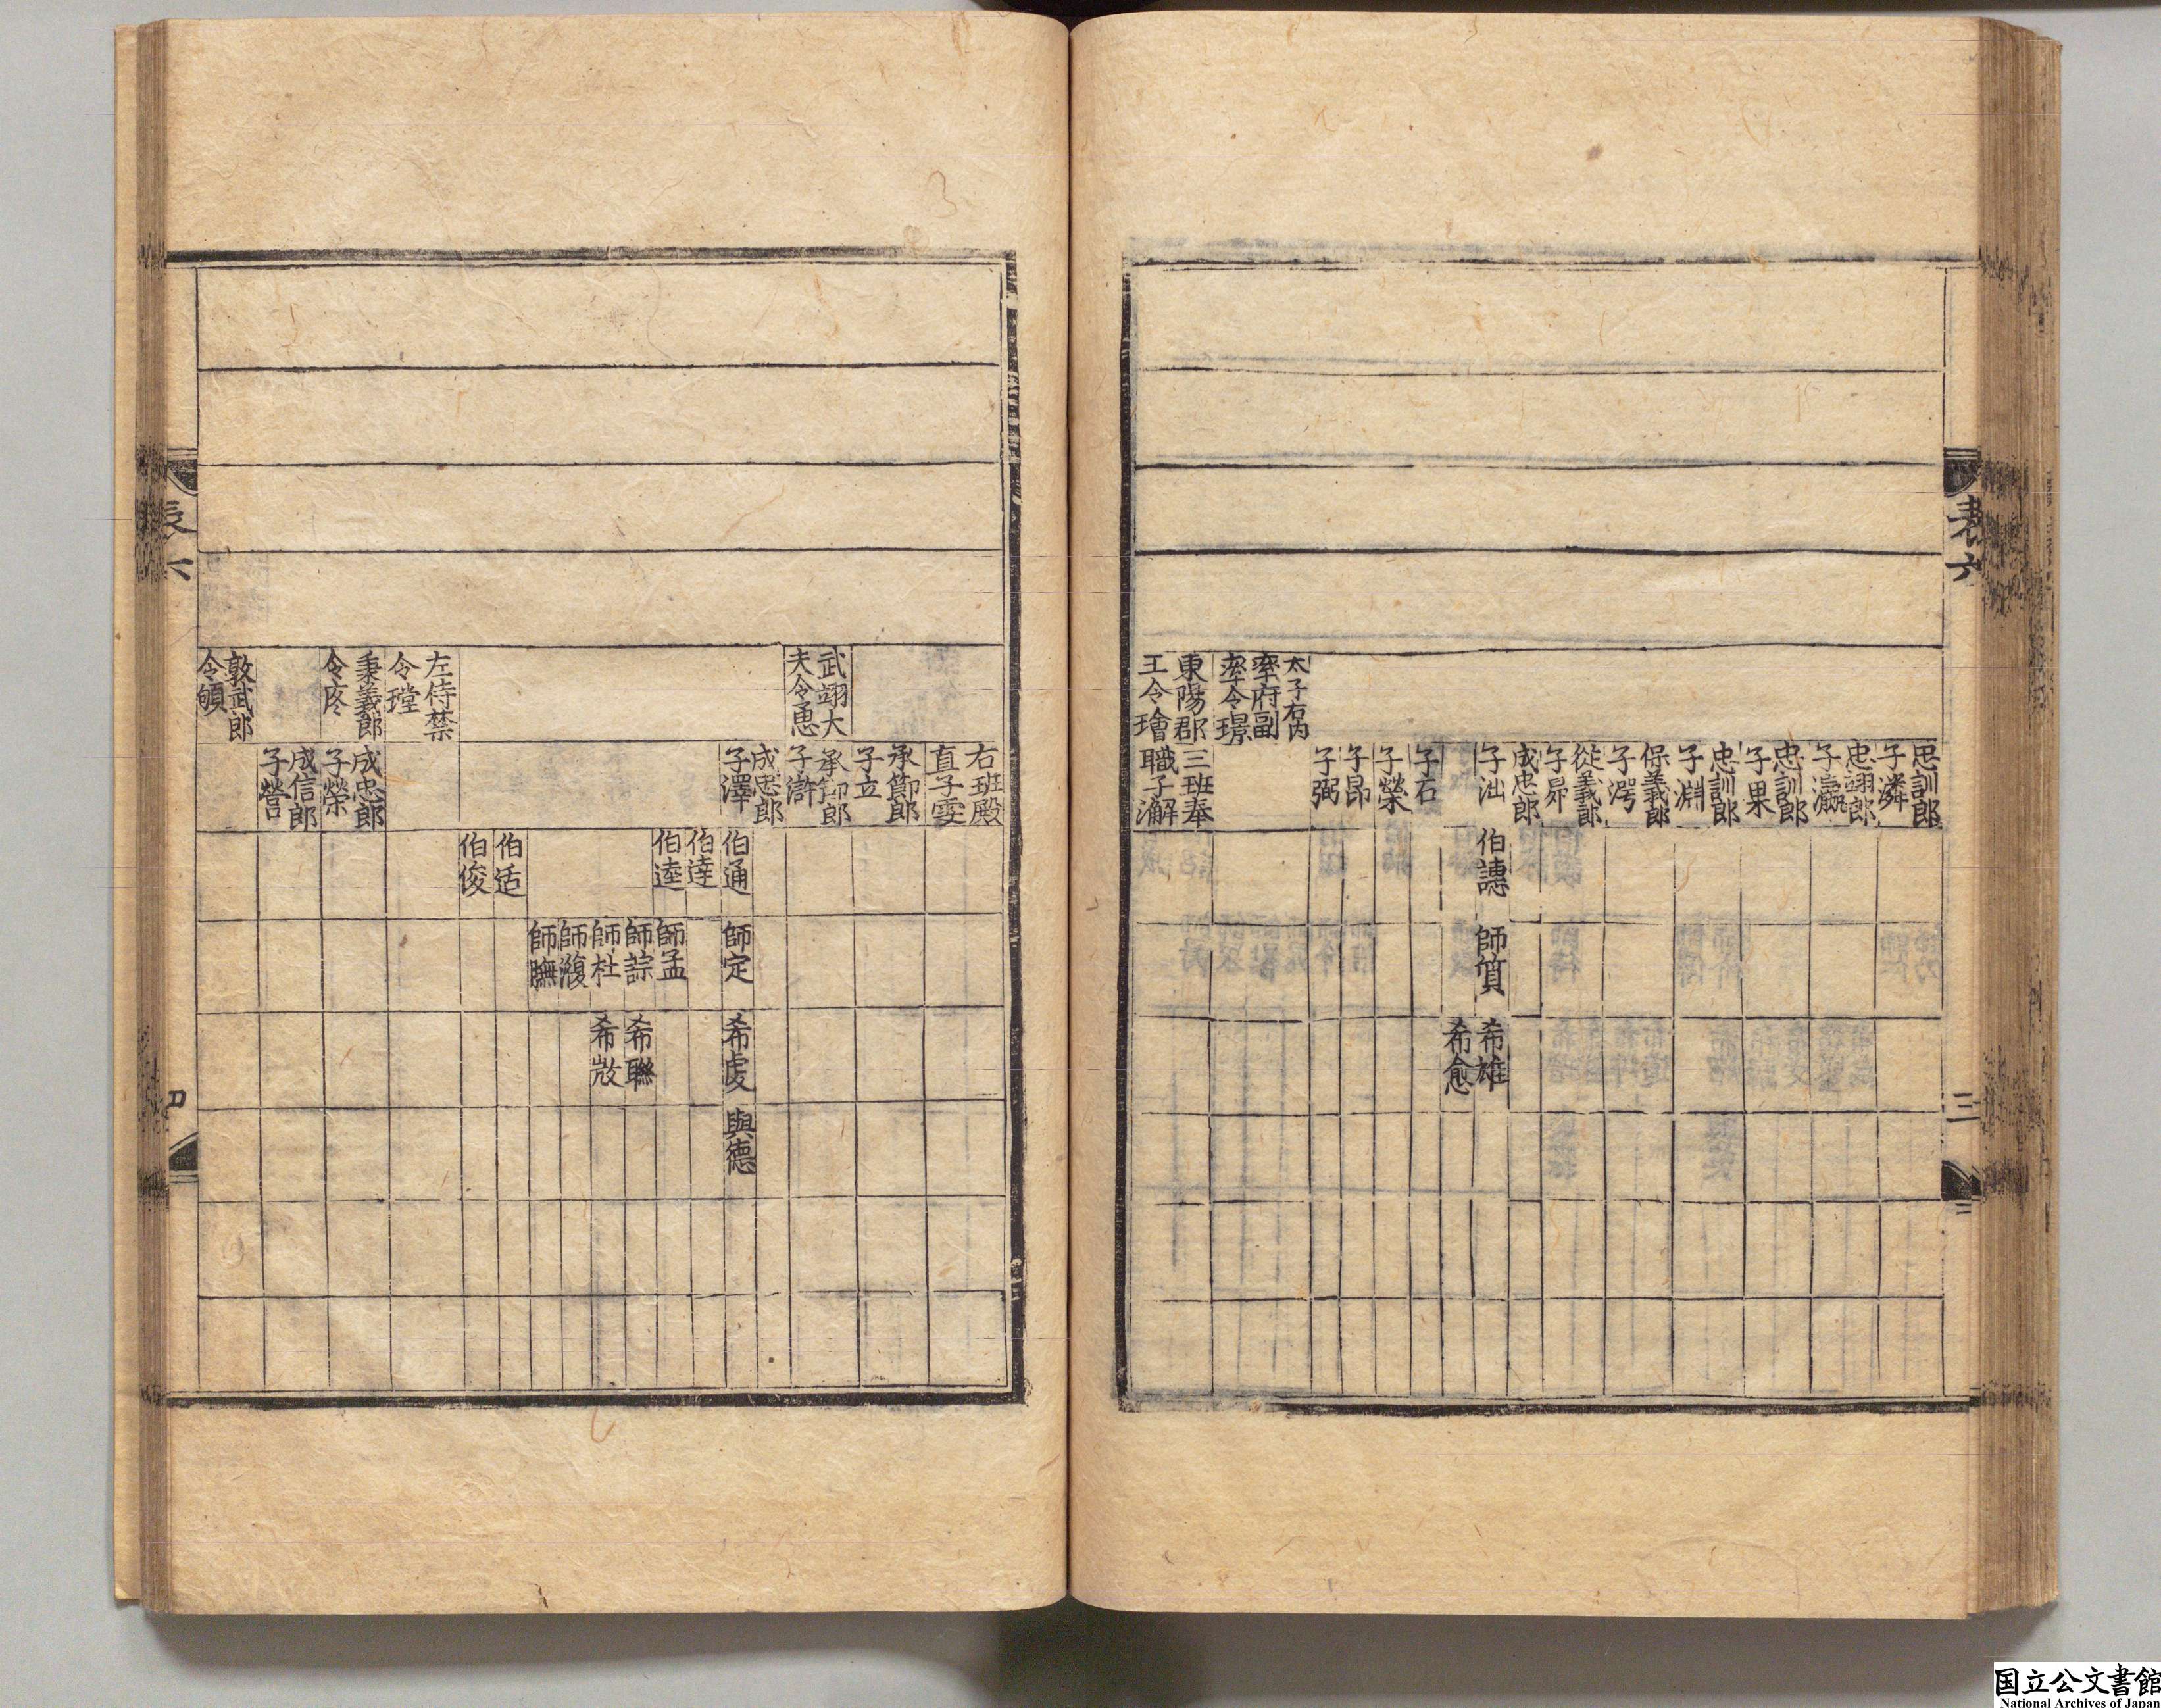 表六
三
忠訓郎
子潾
忠翊郎
子瀛
忠訓郎
子果
忠訓郎
子淵
保義郎
子湂
從義郎
子昴
成忠郎
子泏
伯譓
師質
希雄
希愈
子石
子榮
子昂
子弼
太子右內
率府副
率令璟
東陽郡
王令璯
三班奉
職子澥
右班殿
直子雯
承節郎
子立
武翊大
夫令恿
承節郎
子滸
成忠郎
子澤
伯通
師定
希虔
與德
伯達
伯逵
師孟
師誴
希聯
師杜
師澓
師膴
伯适
伯俊
左侍禁
令瑝
秉義郎
令庝
成忠郎
子榮
成信郎
子營
敦武郎
表六
四
国立公文書館
National Archives of Japan